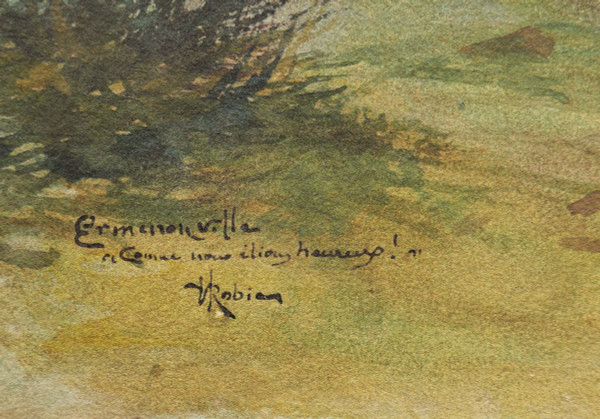 Ermenonville
« Comme nous étions heureux! »
VRobin